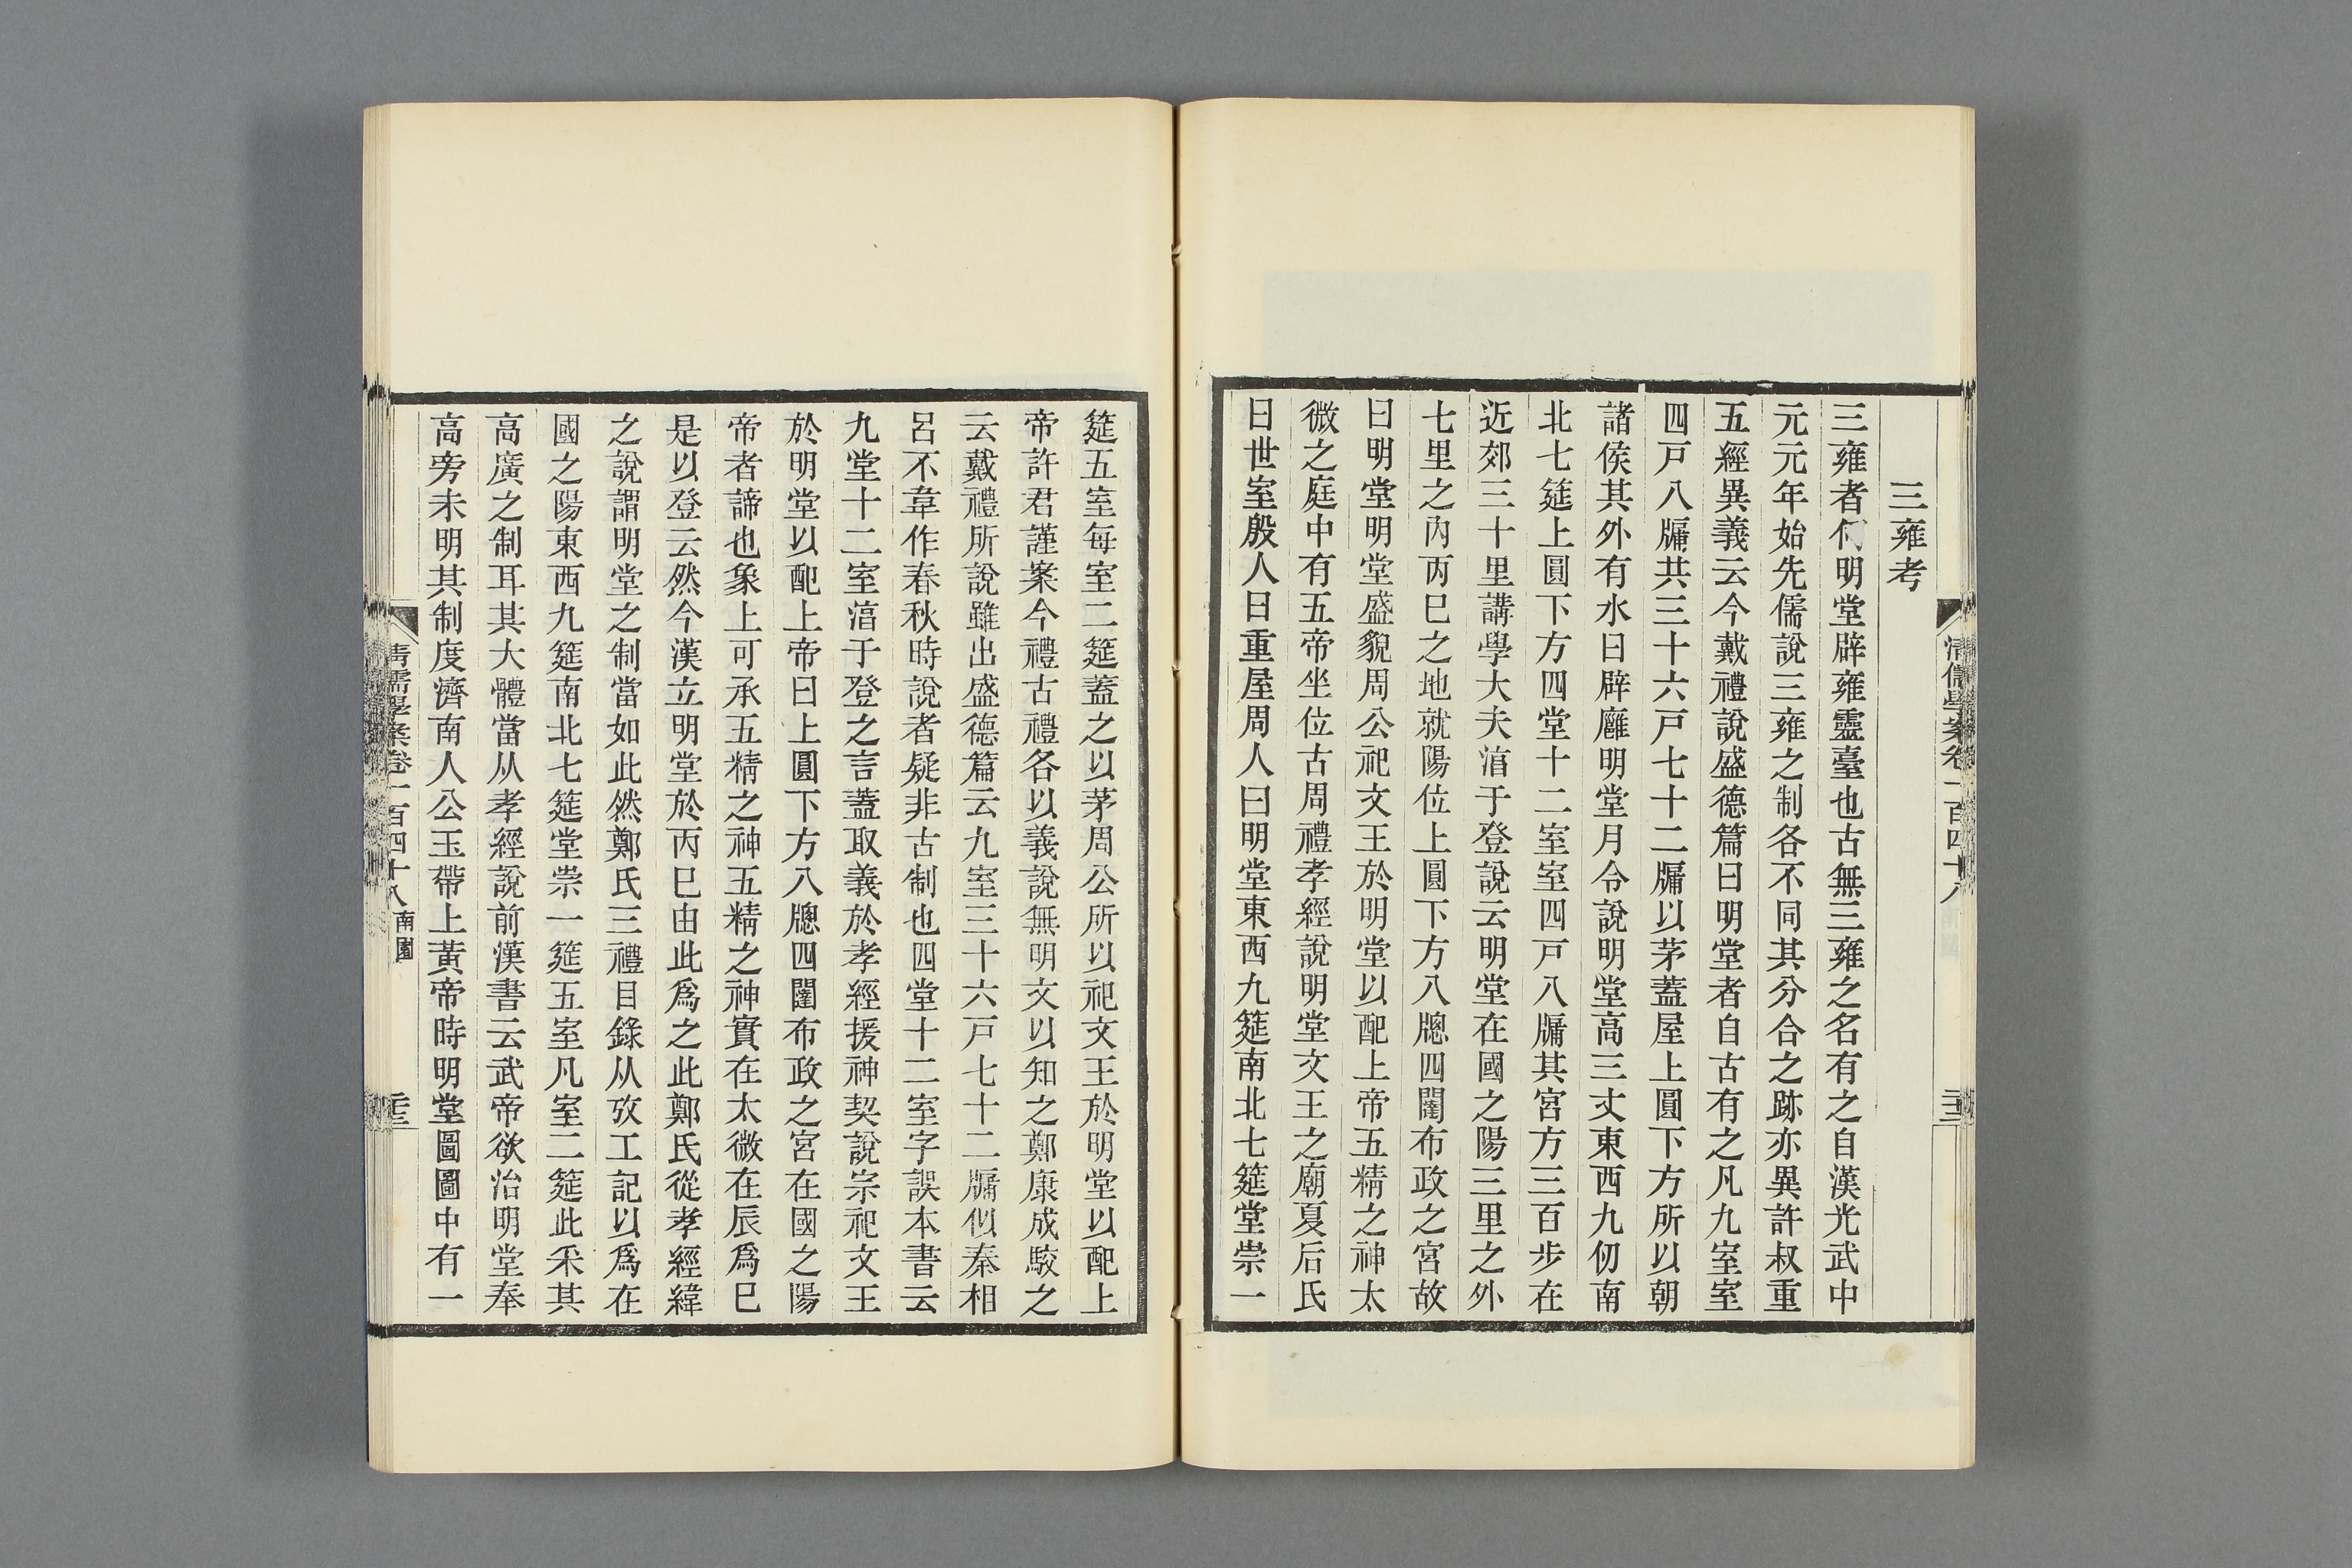 三雍考
三雍者何明堂辟雍靈臺也古無三雍之名有之自漢光武中
元元年始先儒說三雍之制各不同其分合之跡亦異許叔重
五經異義云今戴禮說盛德篇曰明堂者自古有之凡九室室
四戸八牖共三十六戸七十二牖以茅蓋屋上圓下方所以朝
諸侯其外有水曰辟廱明堂月令說明堂高三丈東西九仞南
北七筵上圓下方四堂十二室室四戸八牖其宮方三百步在
近郊三十里講學大夫淯于登說云明堂在國之陽三里之外
七里之內丙巳之地就陽位上圓下方八牕四闥布政之宮故
曰明堂明堂盛貌周公祀文王於明堂以配上帝五精之神太
微之庭中有五帝坐位古周禮孝經說明堂文王之廟夏后氏
曰世室殷人曰重屋周人曰明堂東西九筵南北七筵堂崇一
清儒學案卷一百四十八
筵五室每室二筵蓋之以茅周公所以祀文王於明堂以配上
帝許君謹案今禮古禮各以義說無明文以知之鄭康成駮之
云戴禮所說雖出盛德篇云九室三十六戸七十二牖似秦相
呂不韋作春秋時說者疑非古制也四堂十二室字誤本書云
九堂十二室淯于登之言蓋取義於孝經援神契說宗祀文王
於明堂以配上帝曰上圓下方八牕四闥布政之宮在國之陽
帝者諦也象上可承五精之神五精之神實在太微在辰爲巳
是以登云然今漢立明堂於丙巳由此爲之此鄭氏從孝經緯
之說謂明堂之制當如此然鄭氏三禮目錄从攷工記以爲在
國之陽東西九筵南北七筵堂崇一筵五室凡室二筵此釆其
高廣之制耳其大體當从孝經說前漢書云武帝欲治明堂奉
高旁未明其制度濟南人公玉帶上黃帝時明堂圖圖中有一
清儒學案卷一百四十八 南園